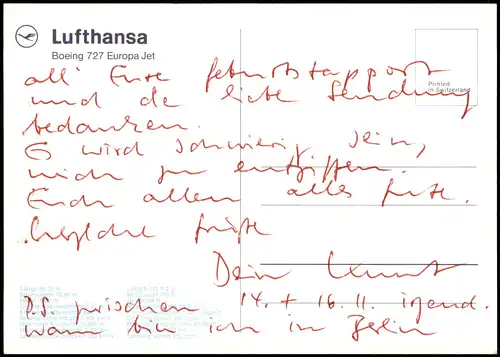 Lufthansa
Boeing 727 Europa Jet
Printed
in Switzerland
all' Eure Geburtstagspost
und die liebe Sendung
bedanken.
Es wird schwierig sein,
mich zu entziffern.
Euch allen alles Gute.
herzliche Grüße
Dein
P.S. zwischen 14. + 16.11. irgend.
wann bin ich in Berlin